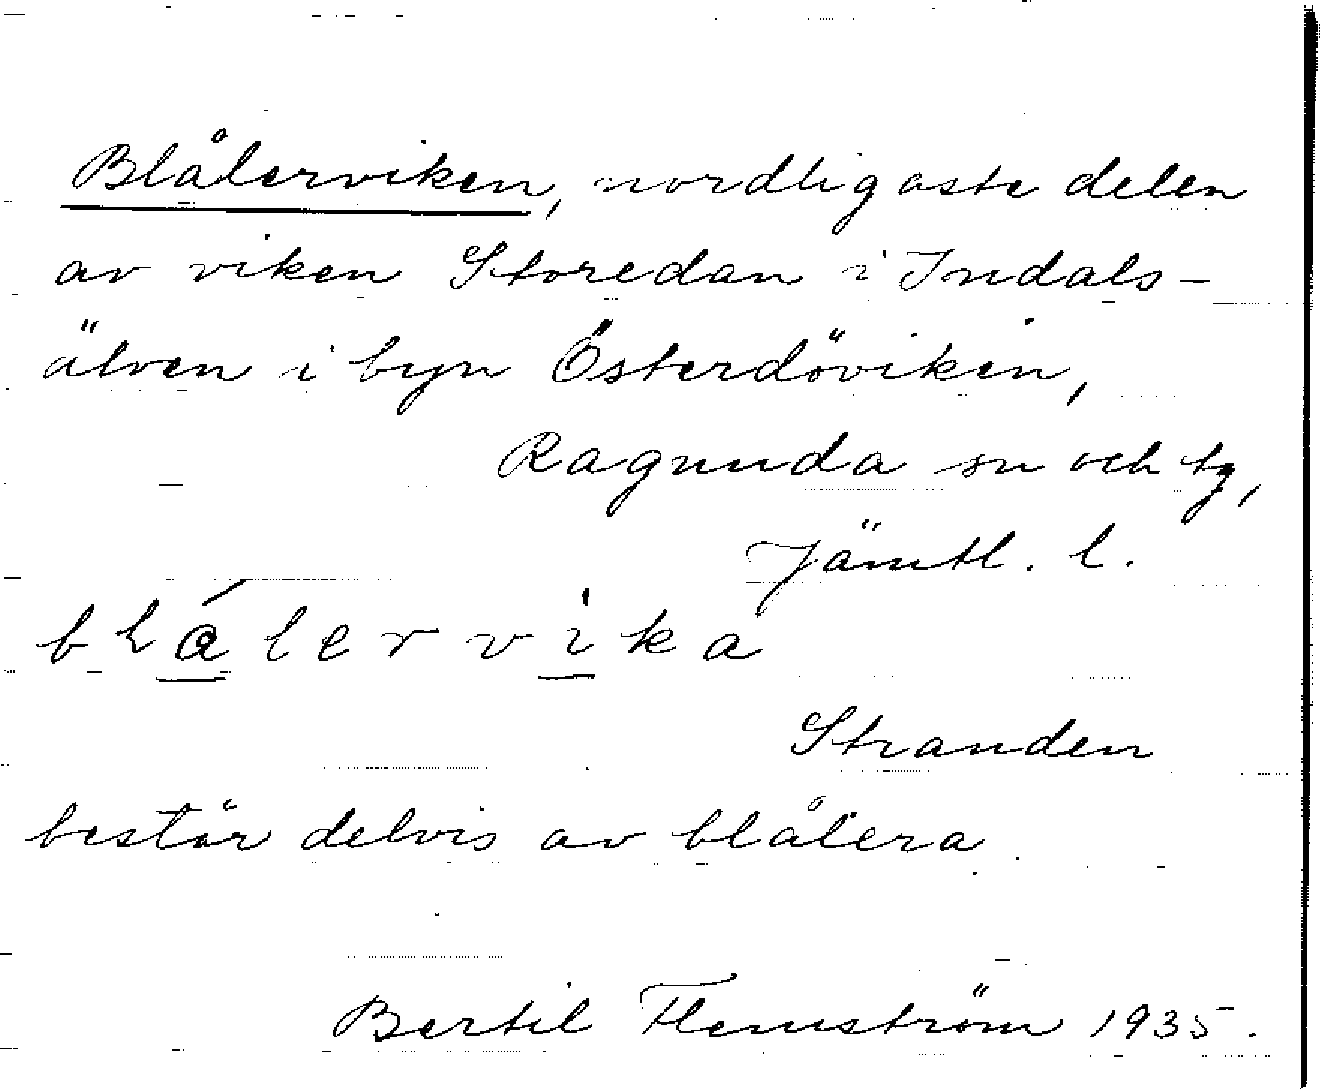 Blålerviken, nordligaste delen
av viken Storedan i Indals-
älven i byn Österdöviken,
Ragunda sn och tg,
Jämtl. l.
blålervika
Stranden
består delvis av blålera
Bertil Flemström 1935.